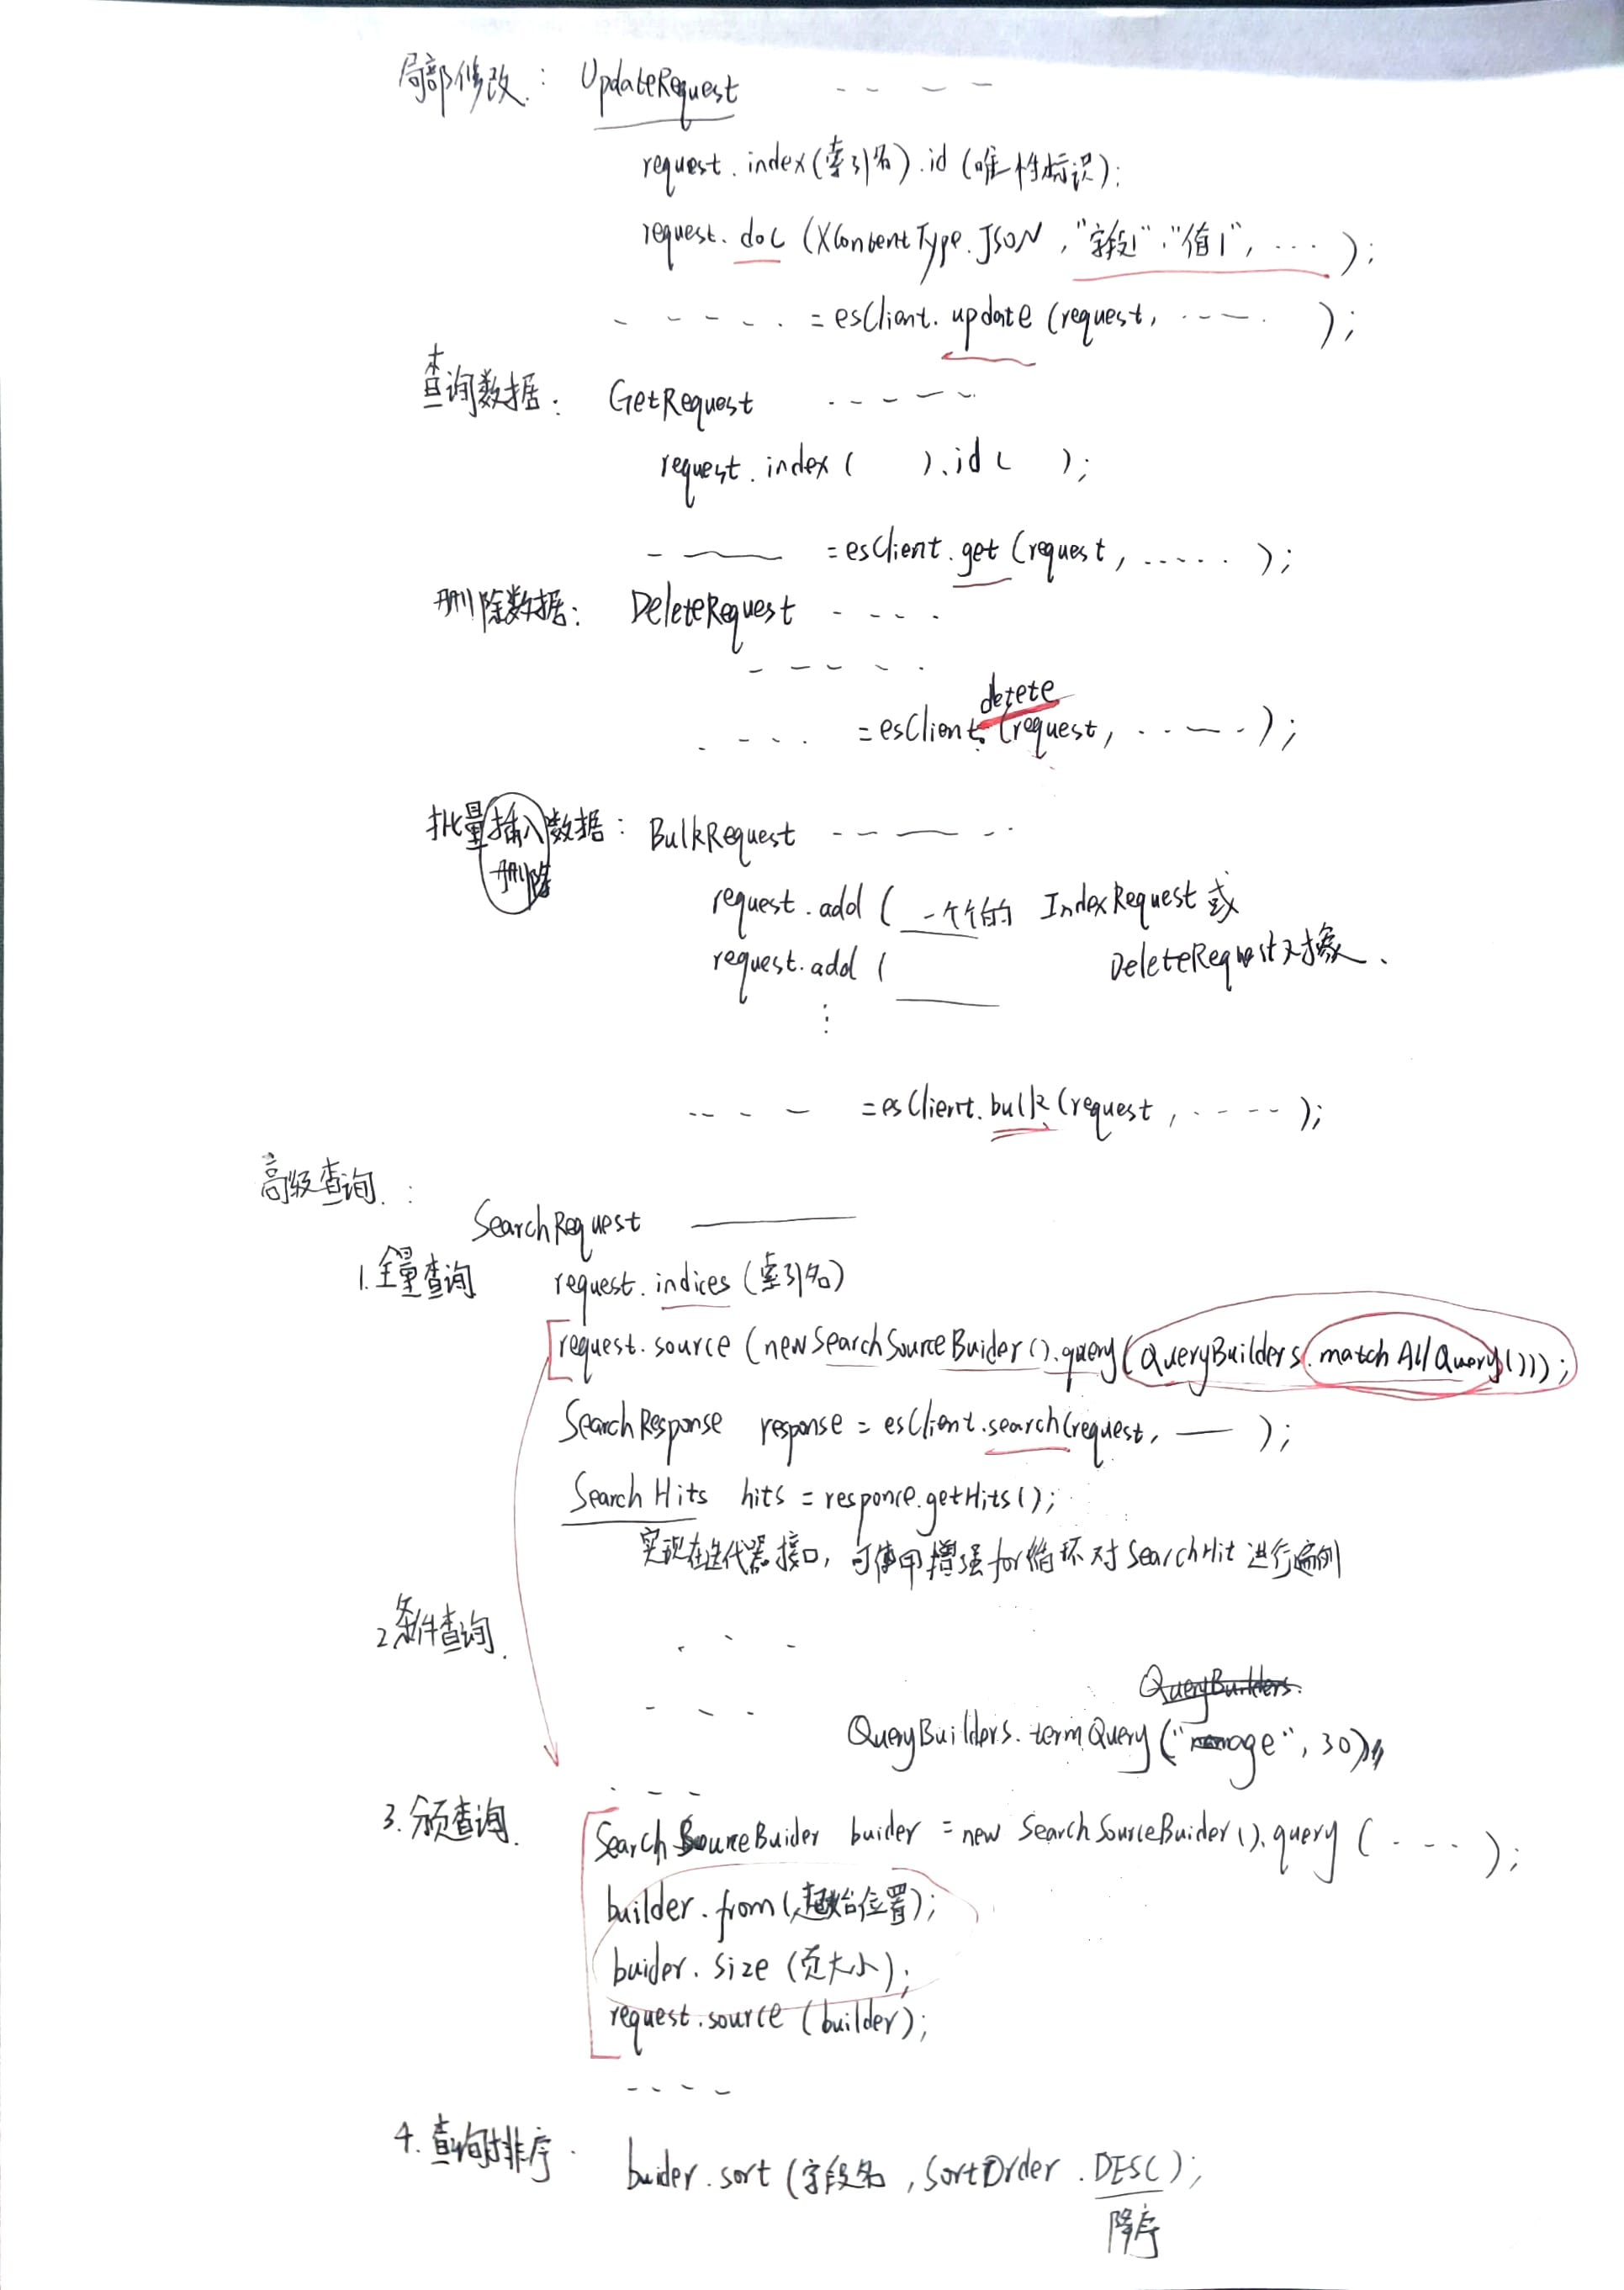 局部修改: UpdateRequest - - - -
request.index(索引名).id(唯一性标识);
request.doc(XContentType.JSON,"字段1":"值1",....);
- - - - . = esClient.update(request, ....);
查询数据: GetRequest - - - - -
request.index( ).id( );
- —— = esClient.get(request, .....);
删除数据: DeleteRequest - - - .
- - - - .
delete
. - - . = esClient.(request, .....);
批量插入数据: BulkRequest - - — - .
删除
request.add( 一个个的 IndexRequest 或
request.add( DeleteRequest对象.
⋮
- - - = esClient.bulk(request, .----);
高级查询:
SearchRequest ———
1.全量查询 request.indices(索引名)
request.source(new SearchSourceBuider().query(QueryBuilders.matchAllQuery()));
SearchResponse response = esClient.search(request, — );
SearchHits hits = responce.getHits();
实现在迭代器接口,可使用增强for循环对SearchHit进行遍例
2条件查询. . - -
QueryBuilders.
- - - QueryBuilders.termQuery("age", 30))
. - -
3.分页查询. SearchSourceBuider buider = new SearchSourceBuider().query(- - - -);
builder.from(起始位置);
buider.size(页大小);
request.source(builder);
- - - -
4.查询时排序. buider.sort(字段名,SortOrder.DESC);
降序